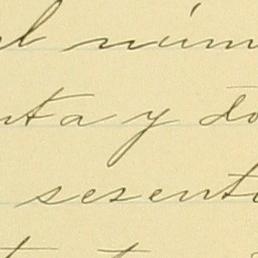 el núm
nta y do
sesent